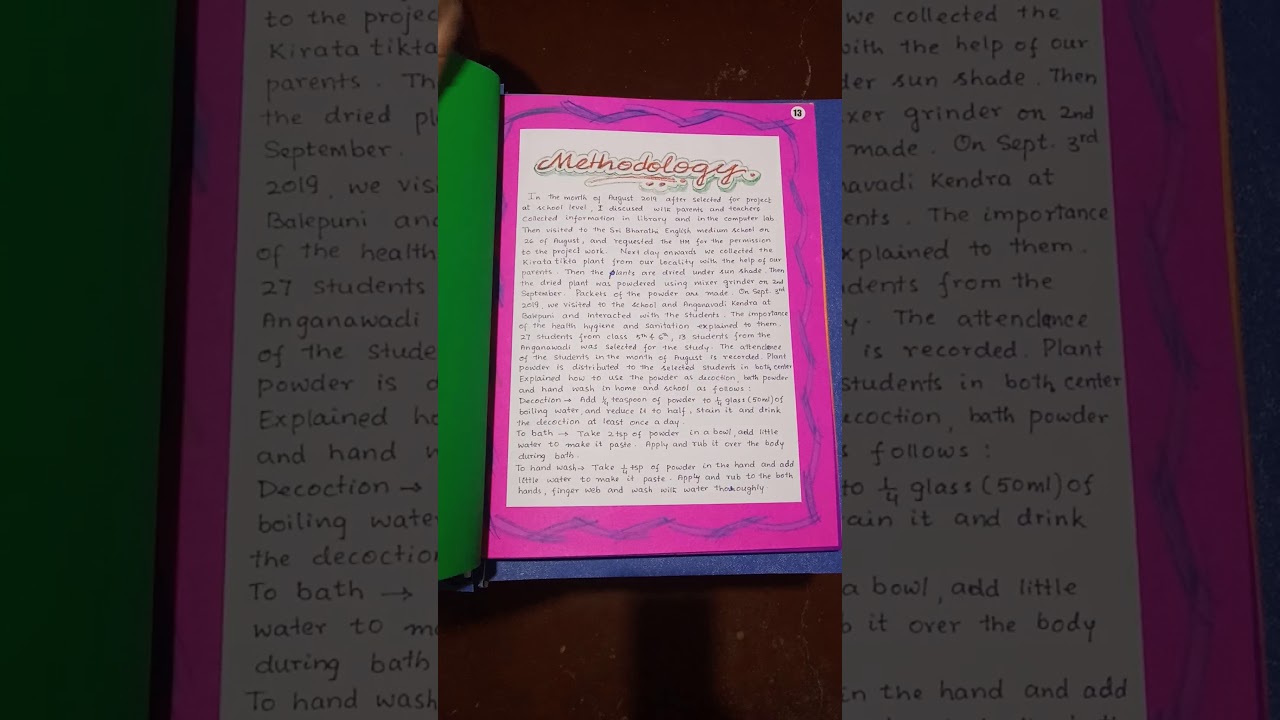 13
Methodology.
In the month of August 2019 after selected for project
at school level, I discussed with parents and teachers
collected information in library and in the computer lab
Then visited to the Sri Bharathi English medium school on
26 of August, and requested the HM for the permission
to the project work. Next day onwards we collected the
Kirata tikta plant from our locality with the help of our
parents. Then the plants are dried under sun shade. Then
the dried plant was powdered using mixer grinder on 2nd
September. Packets of the powder are made. On Sept. 3rd
2019, we visited to the school and Anganavadi Kendra at
Balepuni and interacted with the students. The importance
of the health hygiene and sanitation explained to them.
27 students from class 5th & 6th, 13 students from the
Anganawadi was selected for the study. The attendence
of the students in the month of August is recorded. Plant
powder is distributed to the selected students in both center
Explained how to use the powder as decoction, bath powder
and hand wash in home and school as follows:
Decoction → Add 1/4 teaspoon of powder to 1/4 glass (50ml) of
boiling water, and reduce it to half, stain it and drink
the decoction at least once a day.
To bath → Take 2 tsp of powder in a bowl, add little
water to make it paste. Apply and rub it over the body
during bath.
To hand wash → Take 1/4 tsp of powder in the hand and add
little water to make it paste. Apply and rub to the both
hands, finger web and wash with water thoroughly.